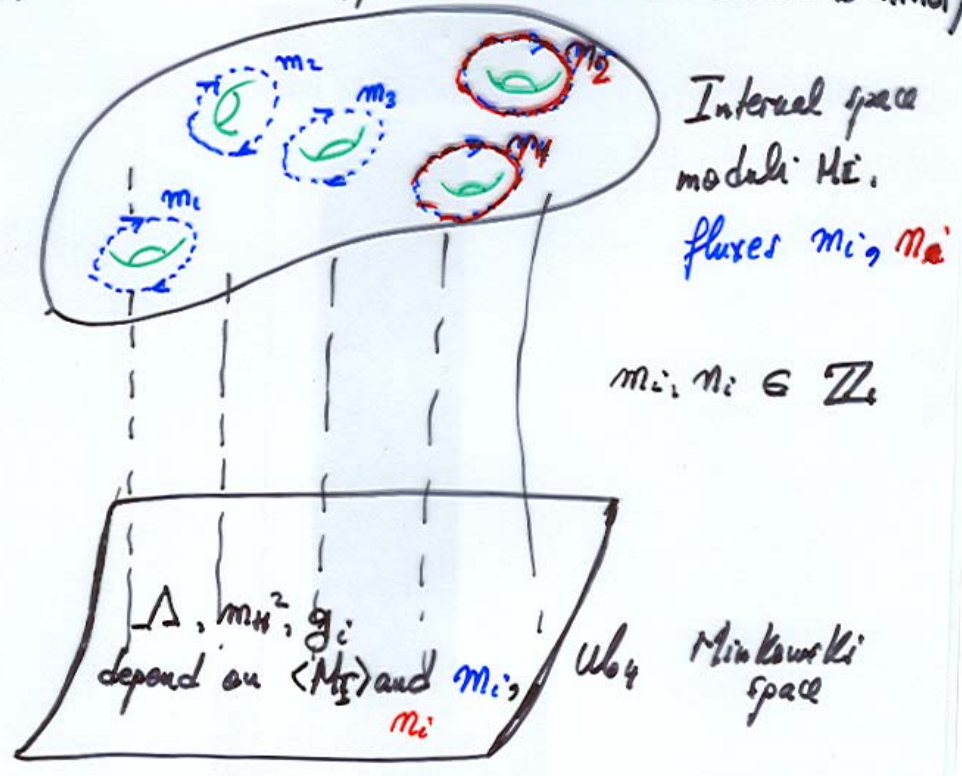 m₂
m₃
m₁
Internal space
moduli M_I.
fluxes mᵢ, nᵢ
mᵢ, nᵢ ∈ ℤ.
Λ, m_H², gᵢ
depend on <M_I> and mᵢ,
nᵢ
Minkowski
space